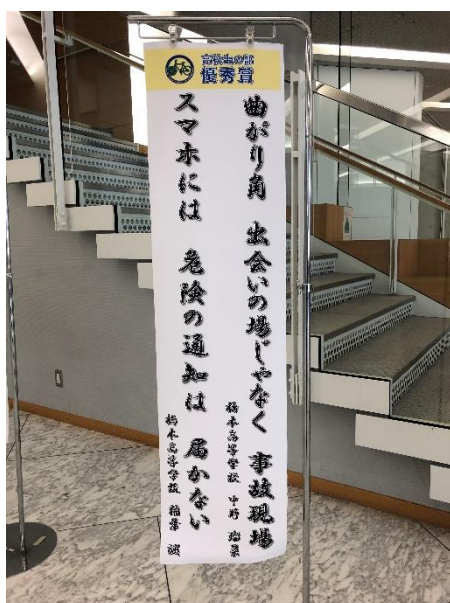 高校生の部
優秀賞
曲がり角 出会いの場じゃなく 事故現場
橋本高等学校 中野 瑞景
スマホには 危険の通知は 届かない
橋本高等学校 稲葉